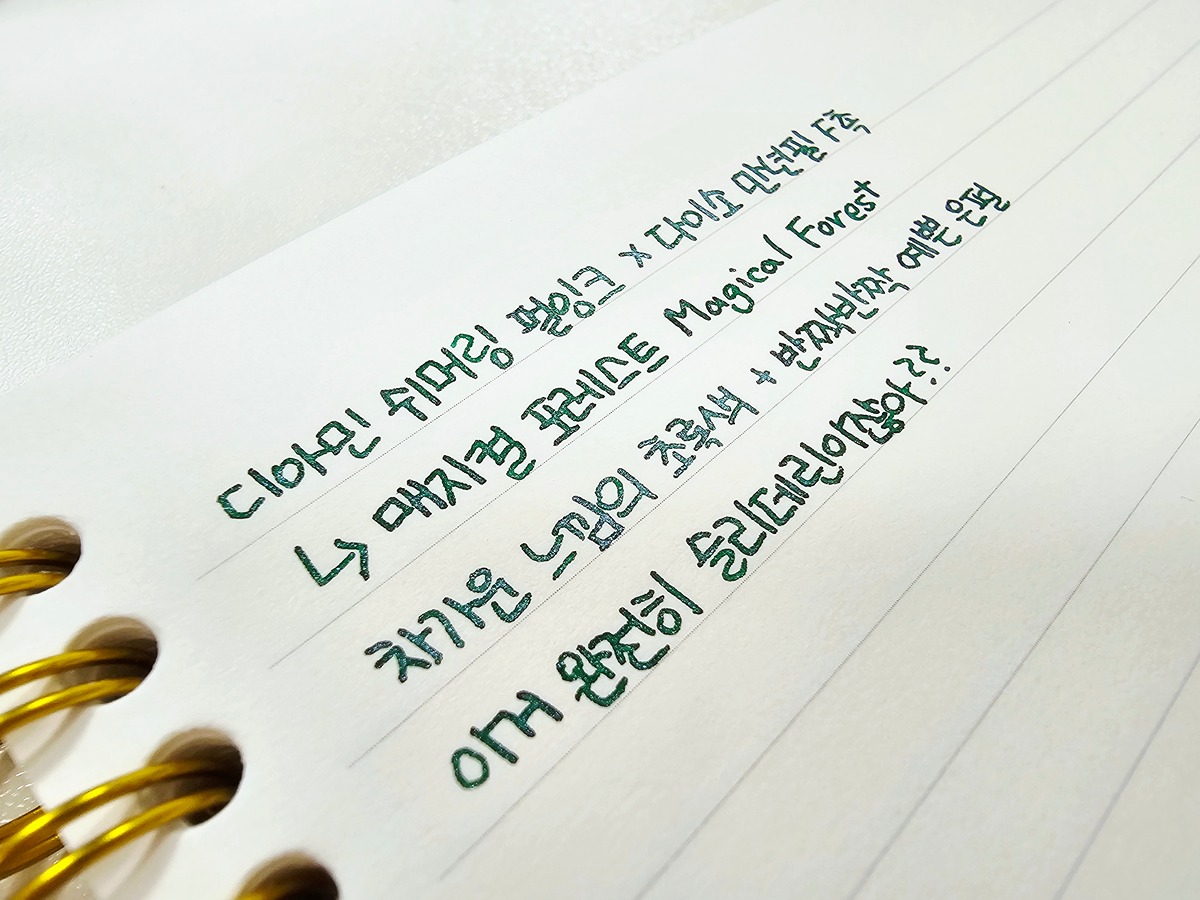 디아민 쉬머링 펜잉크 x 다이소 만년필 F촉
↳ 매지컬 포레스트 Magical Forest
차가운 느낌의 초록색 + 반짝반짝 예쁜 은펄
이거 완전히 슬리데린이잖아??